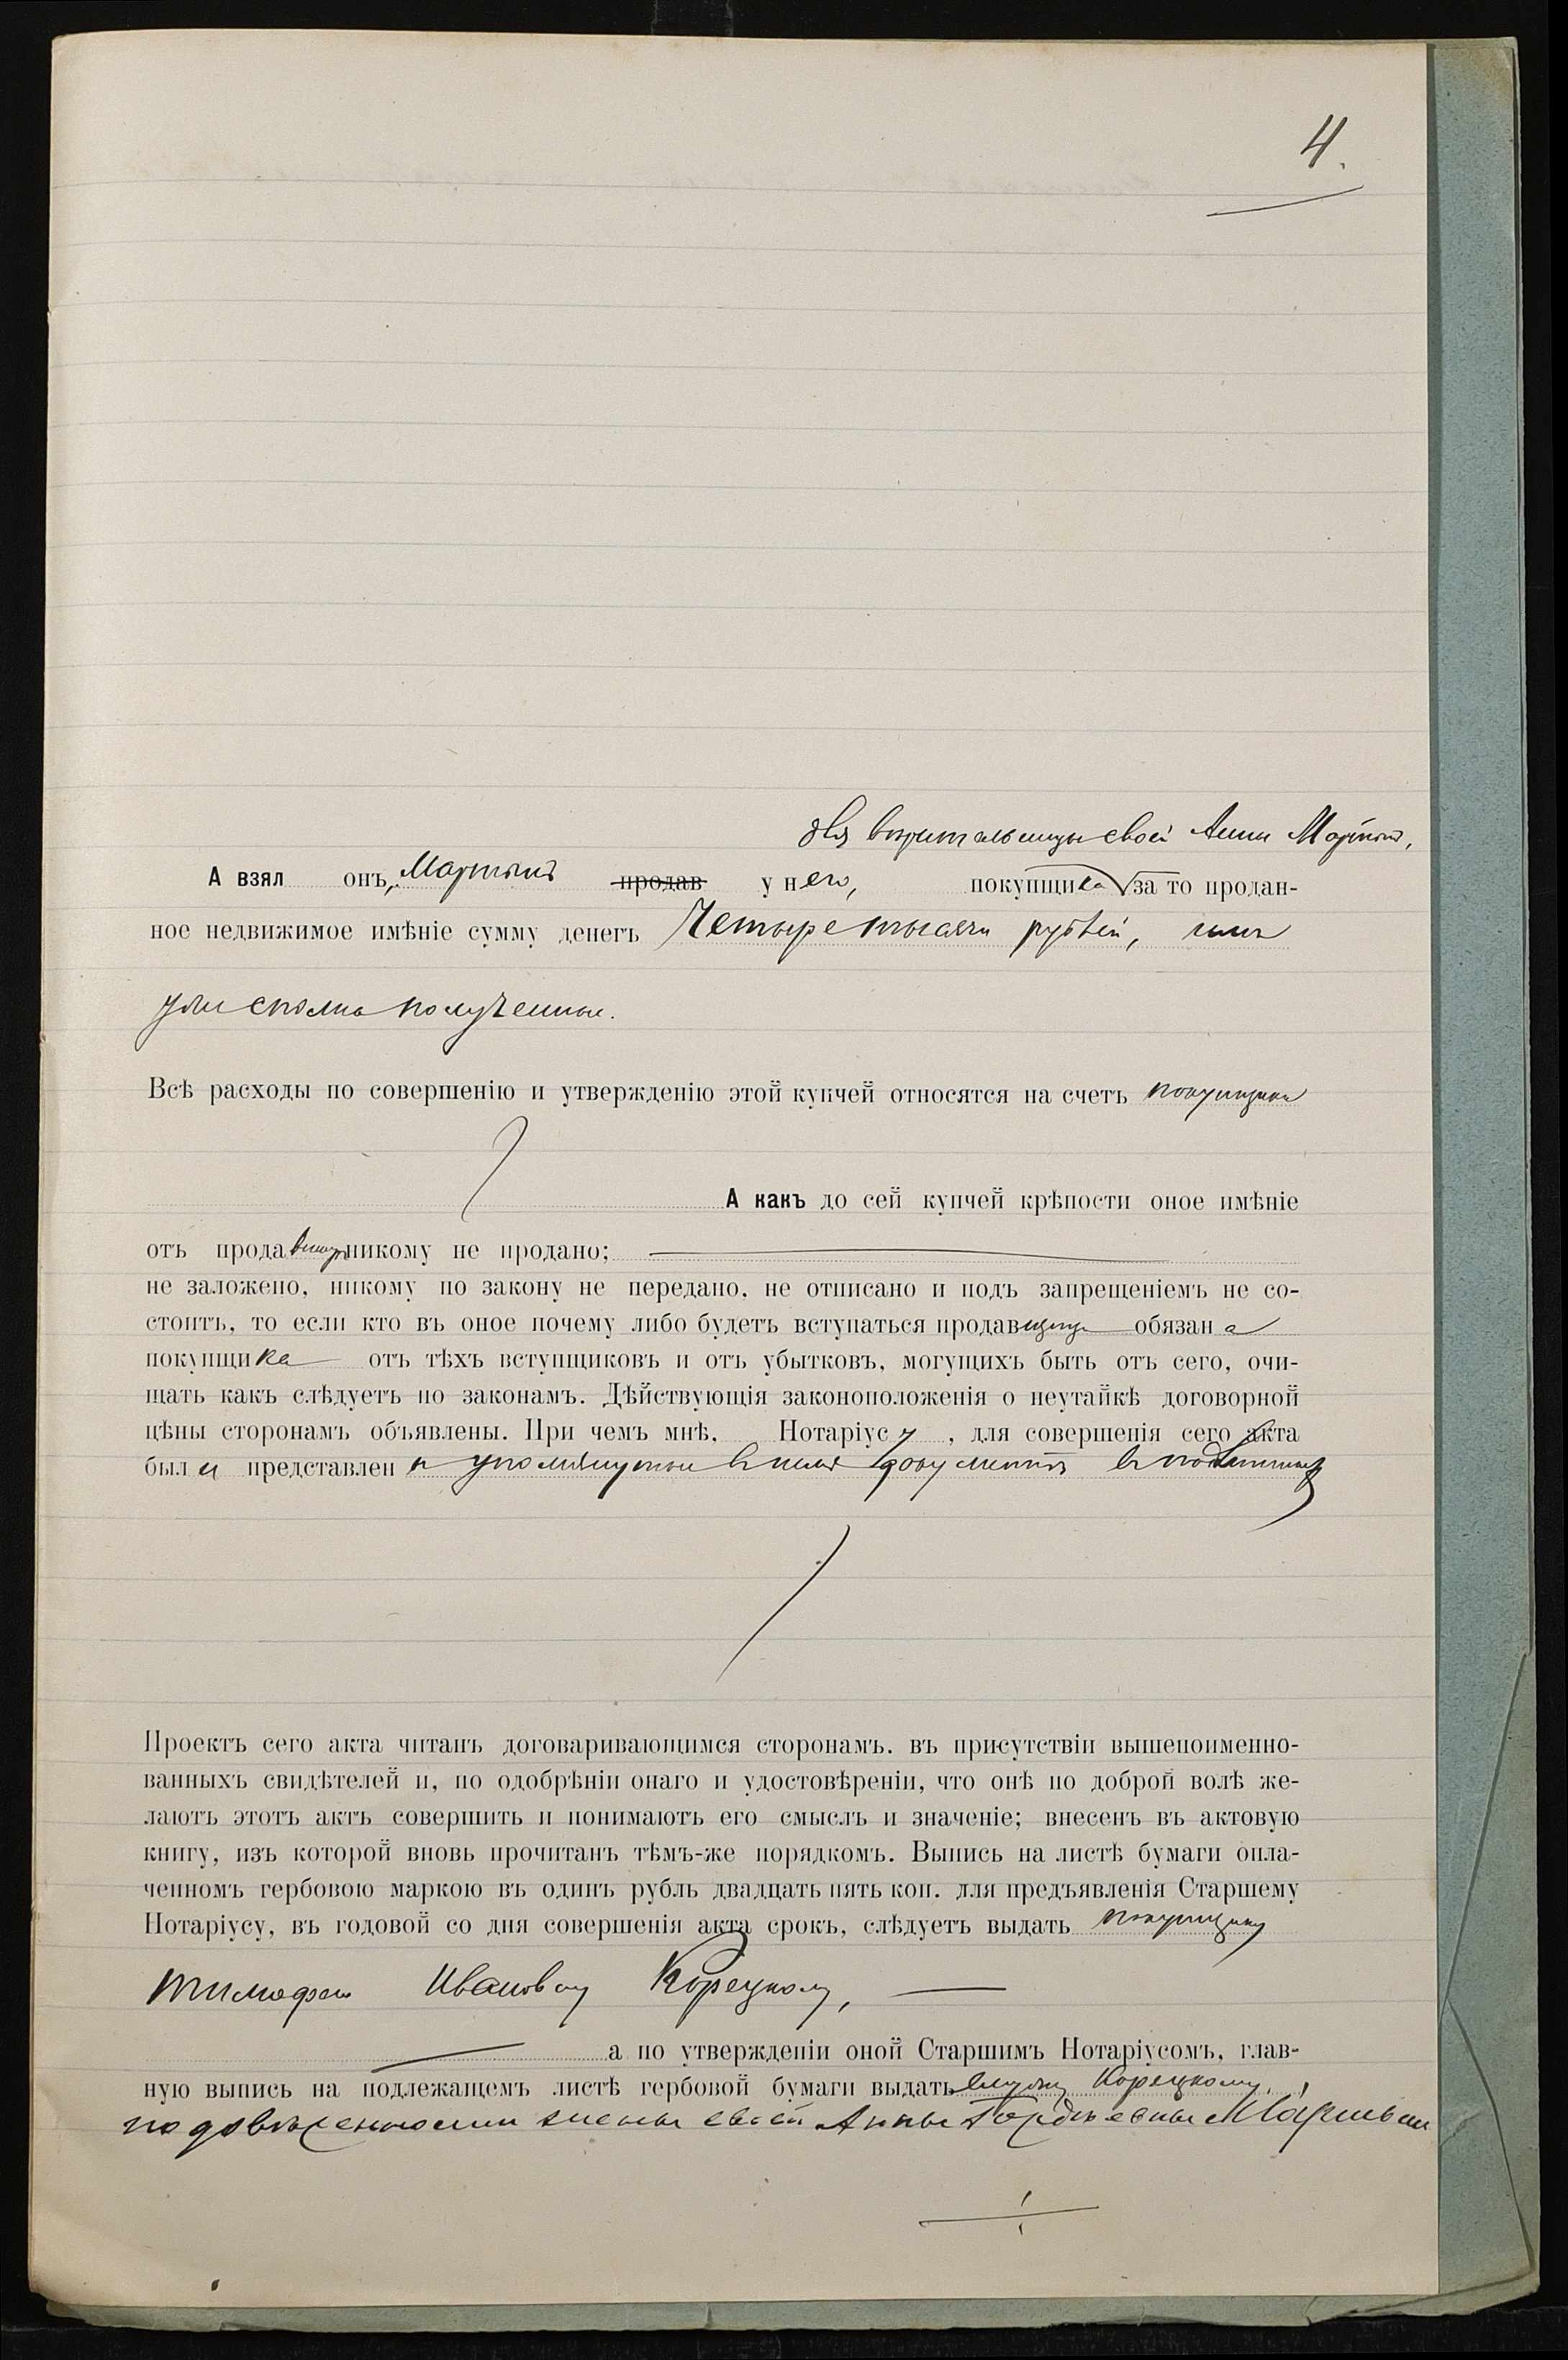 4.
для вѣрительницы своей Анны Мартынъ,
А взял онъ, Мартынъ продав у него, покупщика за то продан-
ное недвижимое имѣніе сумму денегъ Четыре тысячи рублей, имъ
уже сполна полученные.
Всѣ расходы по совершенію и утвержденію этой купчей относятся на счетъ покупщика
А какъ до сей купчей крѣпости оное имѣніе
отъ продавщицы никому не продано;
не заложено, никому по закону не передано, не отписано и подъ запрещеніемъ не со-
стоитъ, то если кто въ оное почему либо будетъ вступаться продавщица обязана
покупщика отъ тѣхъ вступщиковъ и отъ убытковъ, могущихъ быть отъ сего, очи-
щать какъ слѣдуетъ по законамъ. Дѣйствующія законоположенія о неутайкѣ договорной
цѣны сторонамъ объявлены. При чемъ мнѣ, Нотаріусу, для совершенія сего акта
были представлены упомянутые въ немъ документы
Проектъ сего акта читанъ договаривающимся сторонамъ. въ присутствіи вышепоименно-
ванныхъ свидѣтелей и, по одобрѣніи онаго и удостовѣреніи, что онѣ по доброй волѣ же-
лаютъ этотъ актъ совершить и понимаютъ его смыслъ и значеніе; внесенъ въ актовую
книгу, изъ которой вновь прочитанъ тѣмъ-же порядкомъ. Выпись на листѣ бумаги опла-
ченномъ гербовою маркою въ одинъ рубль двадцать пять коп. для предъявленія Старшему
Нотаріусу, въ годовой со дня совершенія акта срокъ, слѣдуетъ выдать покупщику
Тимофею Ивановичу Корецкому,
а по утвержденіи оной Старшимъ Нотаріусомъ, глав-
ную выпись на подлежащемъ листѣ гербовой бумаги выдать ему же Корецкому.
по довѣренности жены своей Анны Гордѣевны Мартынъ